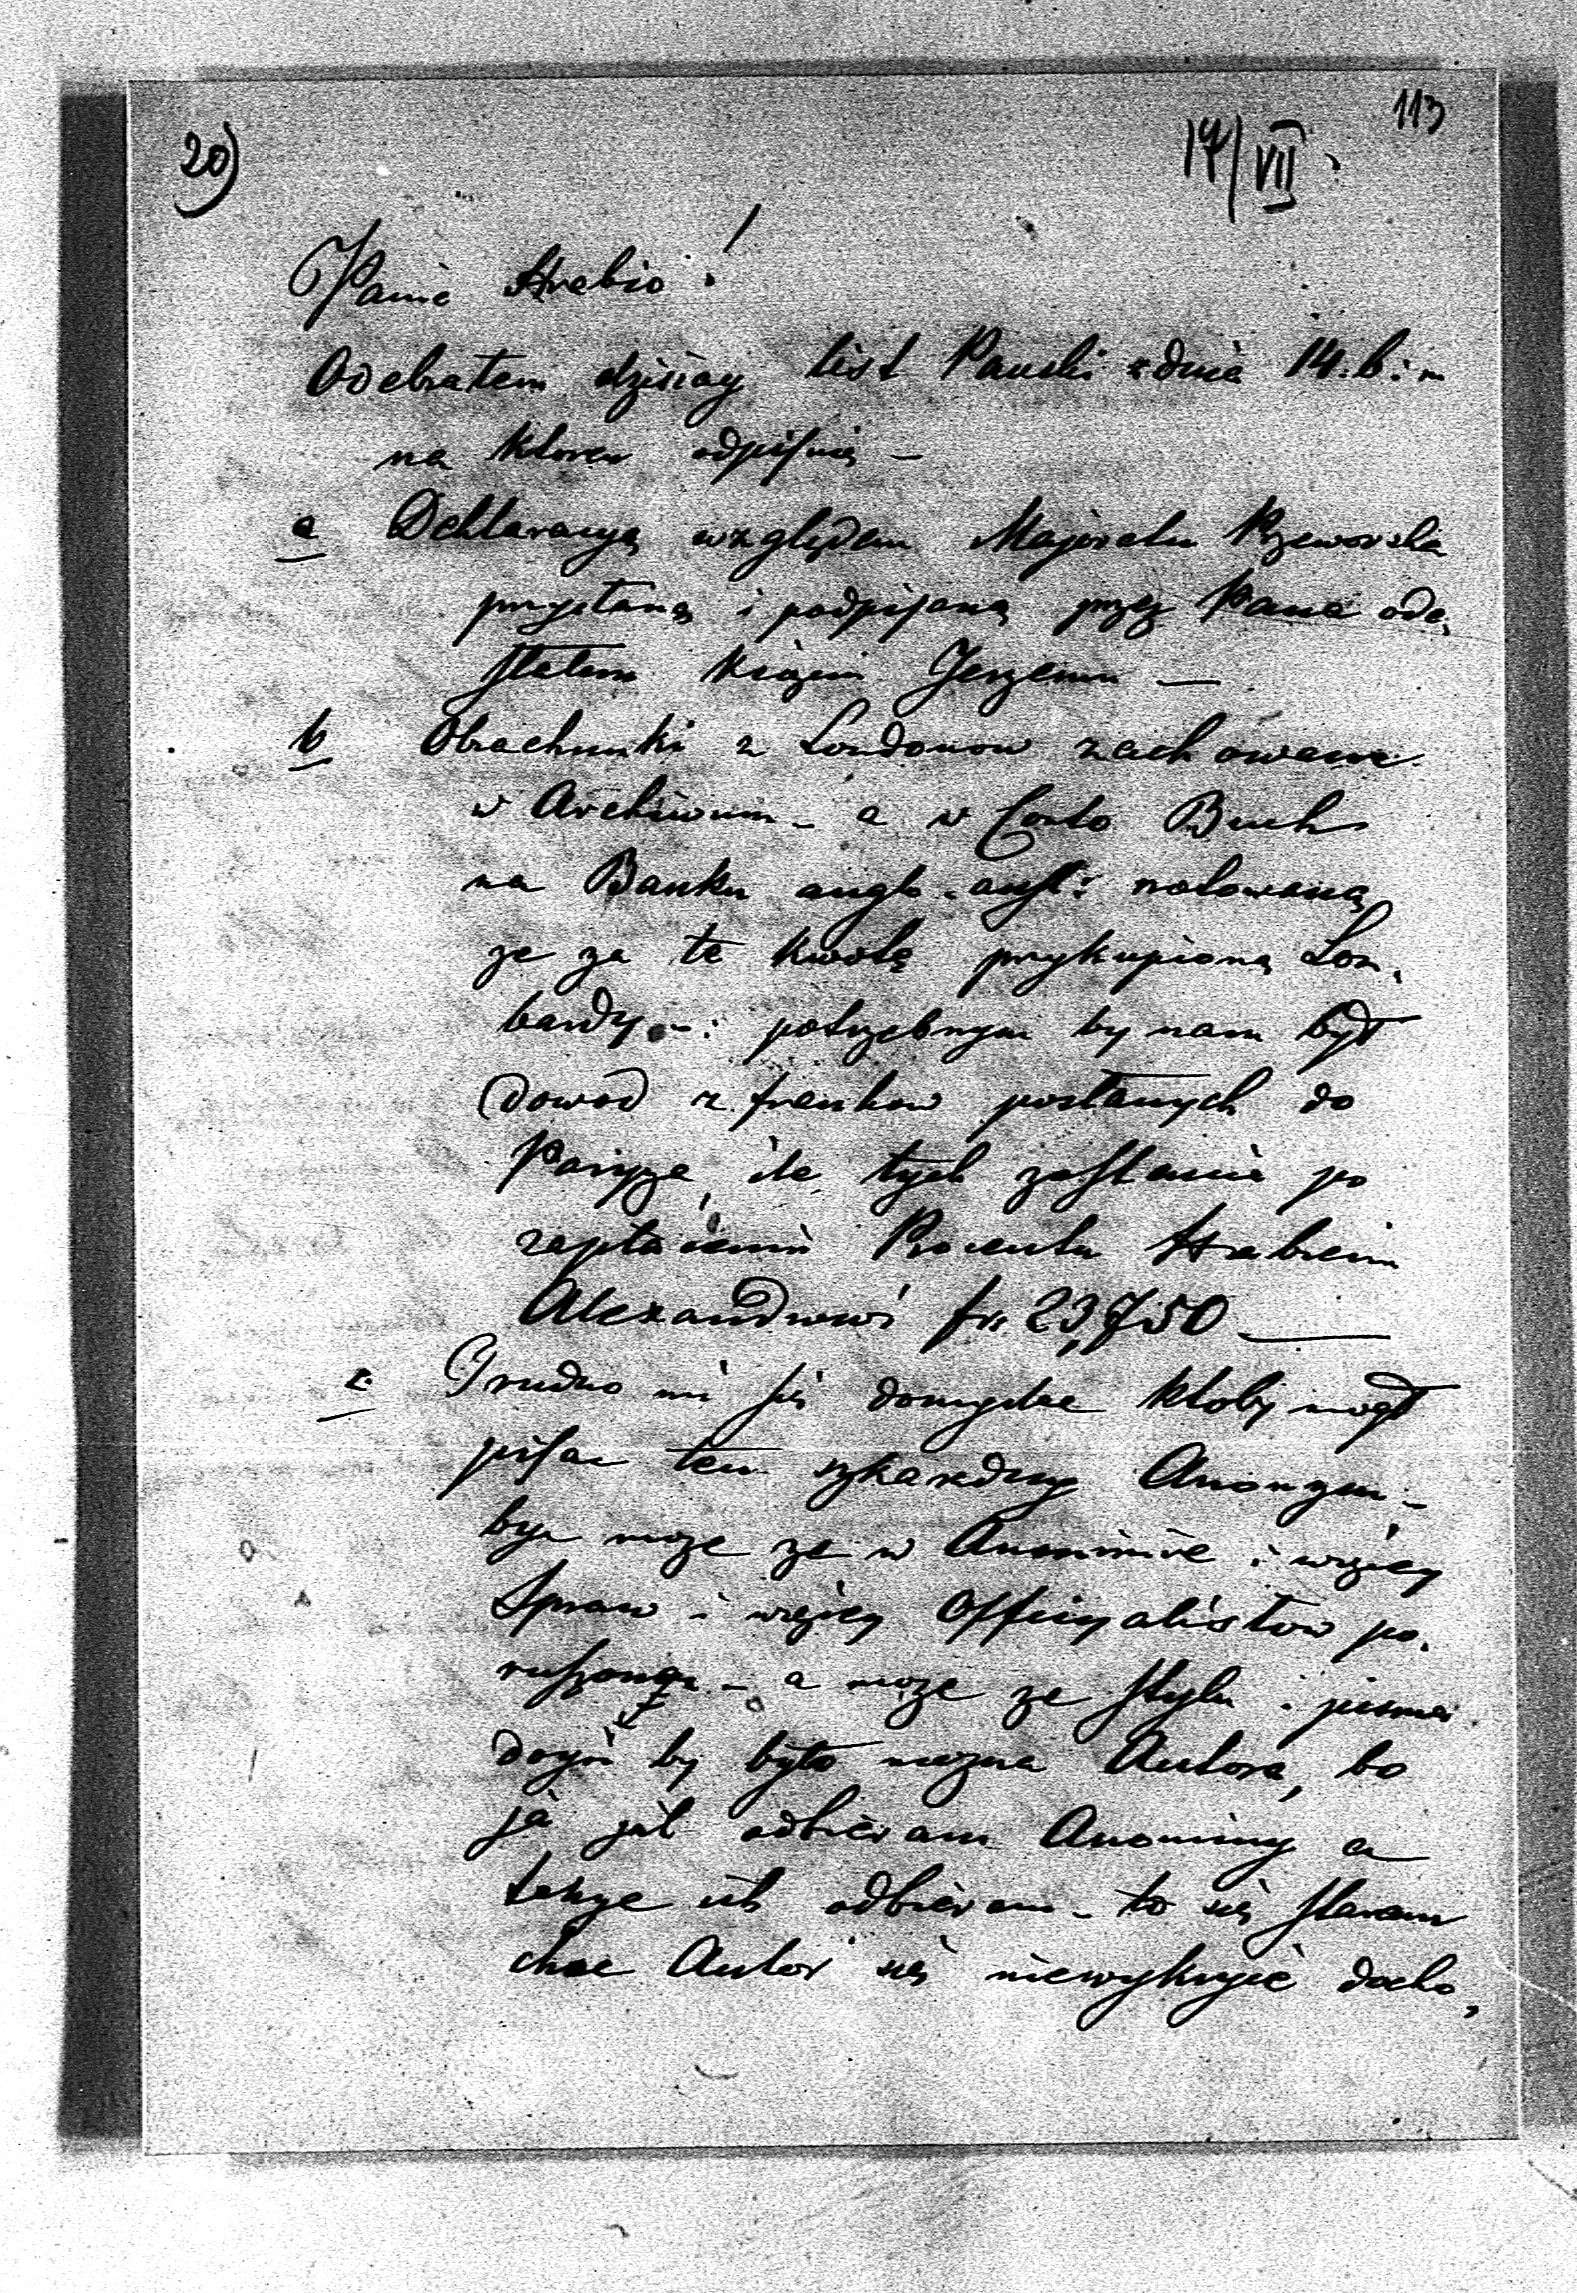 113
20)
17/VII
Panie Hrabio!
Odebrałem dzisiay list Pański z dnia 14. b: m
na ktoren odpisuię —
a Deklaracyą względem Majoratu Przeworska
przysłaną i podpisaną przez Pana ode,
słałem Xięciu Jerzemu —
b Obrachunki z Londonow zachowane
w Archiwum - a w Conto Buch
na Banku anglo-aust: notowaną
ze za te kwotę przykupioną Lom,
bardy -: potrzebnym by nam był
dowod z frankow posłanych do
Paryza, ile tych zostanie po
zapłaceniu Procentu Hrabiemu
Alexandrowi fr. 23,750 —
c Trudno mi się domyslec ktoby mogł
pisac ten szkaradny Anonym -
byc moze ze w Anonimie i więcey
Spraw i więcey Officyalistow po,
ruszono - a moze ze stylu i pisma
doyść by było mozna Autora, bo
ja jak odbieram Anonimy a
takze ich odbieram - to się staram
choc Autor się niewykryie docho,